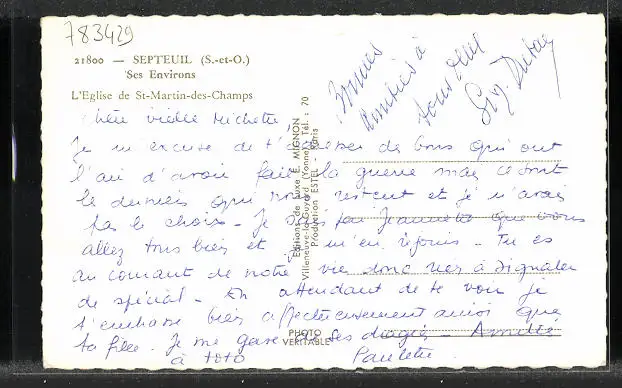 783429
21800 — SEPTEUIL (S.-et-O.)
Ses Environs
L'Eglise de St-Martin-des-Champs
Bonnes
Amitiés à
tous
Editions de Luxe E. MIGNON
Villeneuve-la-Guyard (Yonne) Tél. : 70
Production ESTEL - Paris
PHOTO
VERITABLE
Chère vieille Michette,
Je m'excuse de t'adresser de bons qui ont
l'air d'avoir fait la guerre mais ce sont
le derniers qui nous restent et je n'avais
pas le choix - Je sais par Jeannette que vous
allez tous bien et je m'en réjouis - Tu es
au courant de notre vie donc rien à signaler
de spécial - En attendant de te voir je
t'embrasse bien affectueusement ainsi que
ta fille. Je me ses - Amitié
à toto Paulette